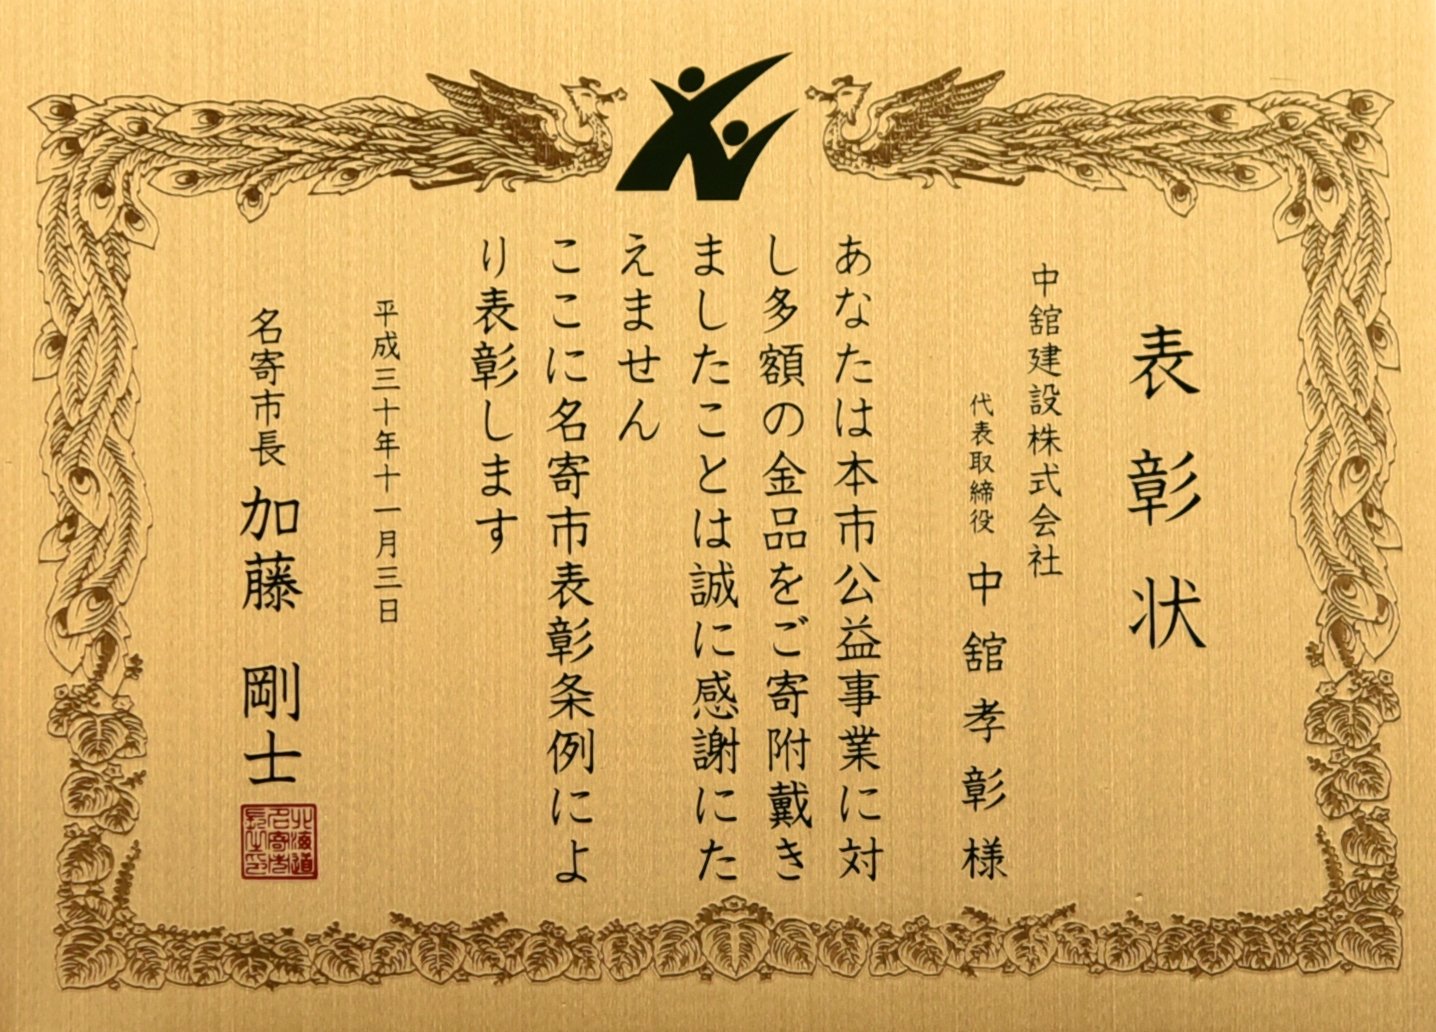 表彰状
中舘建設株式会社
代表取締役 中舘孝彰様
あなたは本市公益事業に対
し多額の金品をご寄附戴き
ましたことは誠に感謝にた
えません
ここに名寄市表彰条例によ
り表彰します
平成三十年十一月三日
名寄市長 加藤剛士
北海道
名寄市
長之印